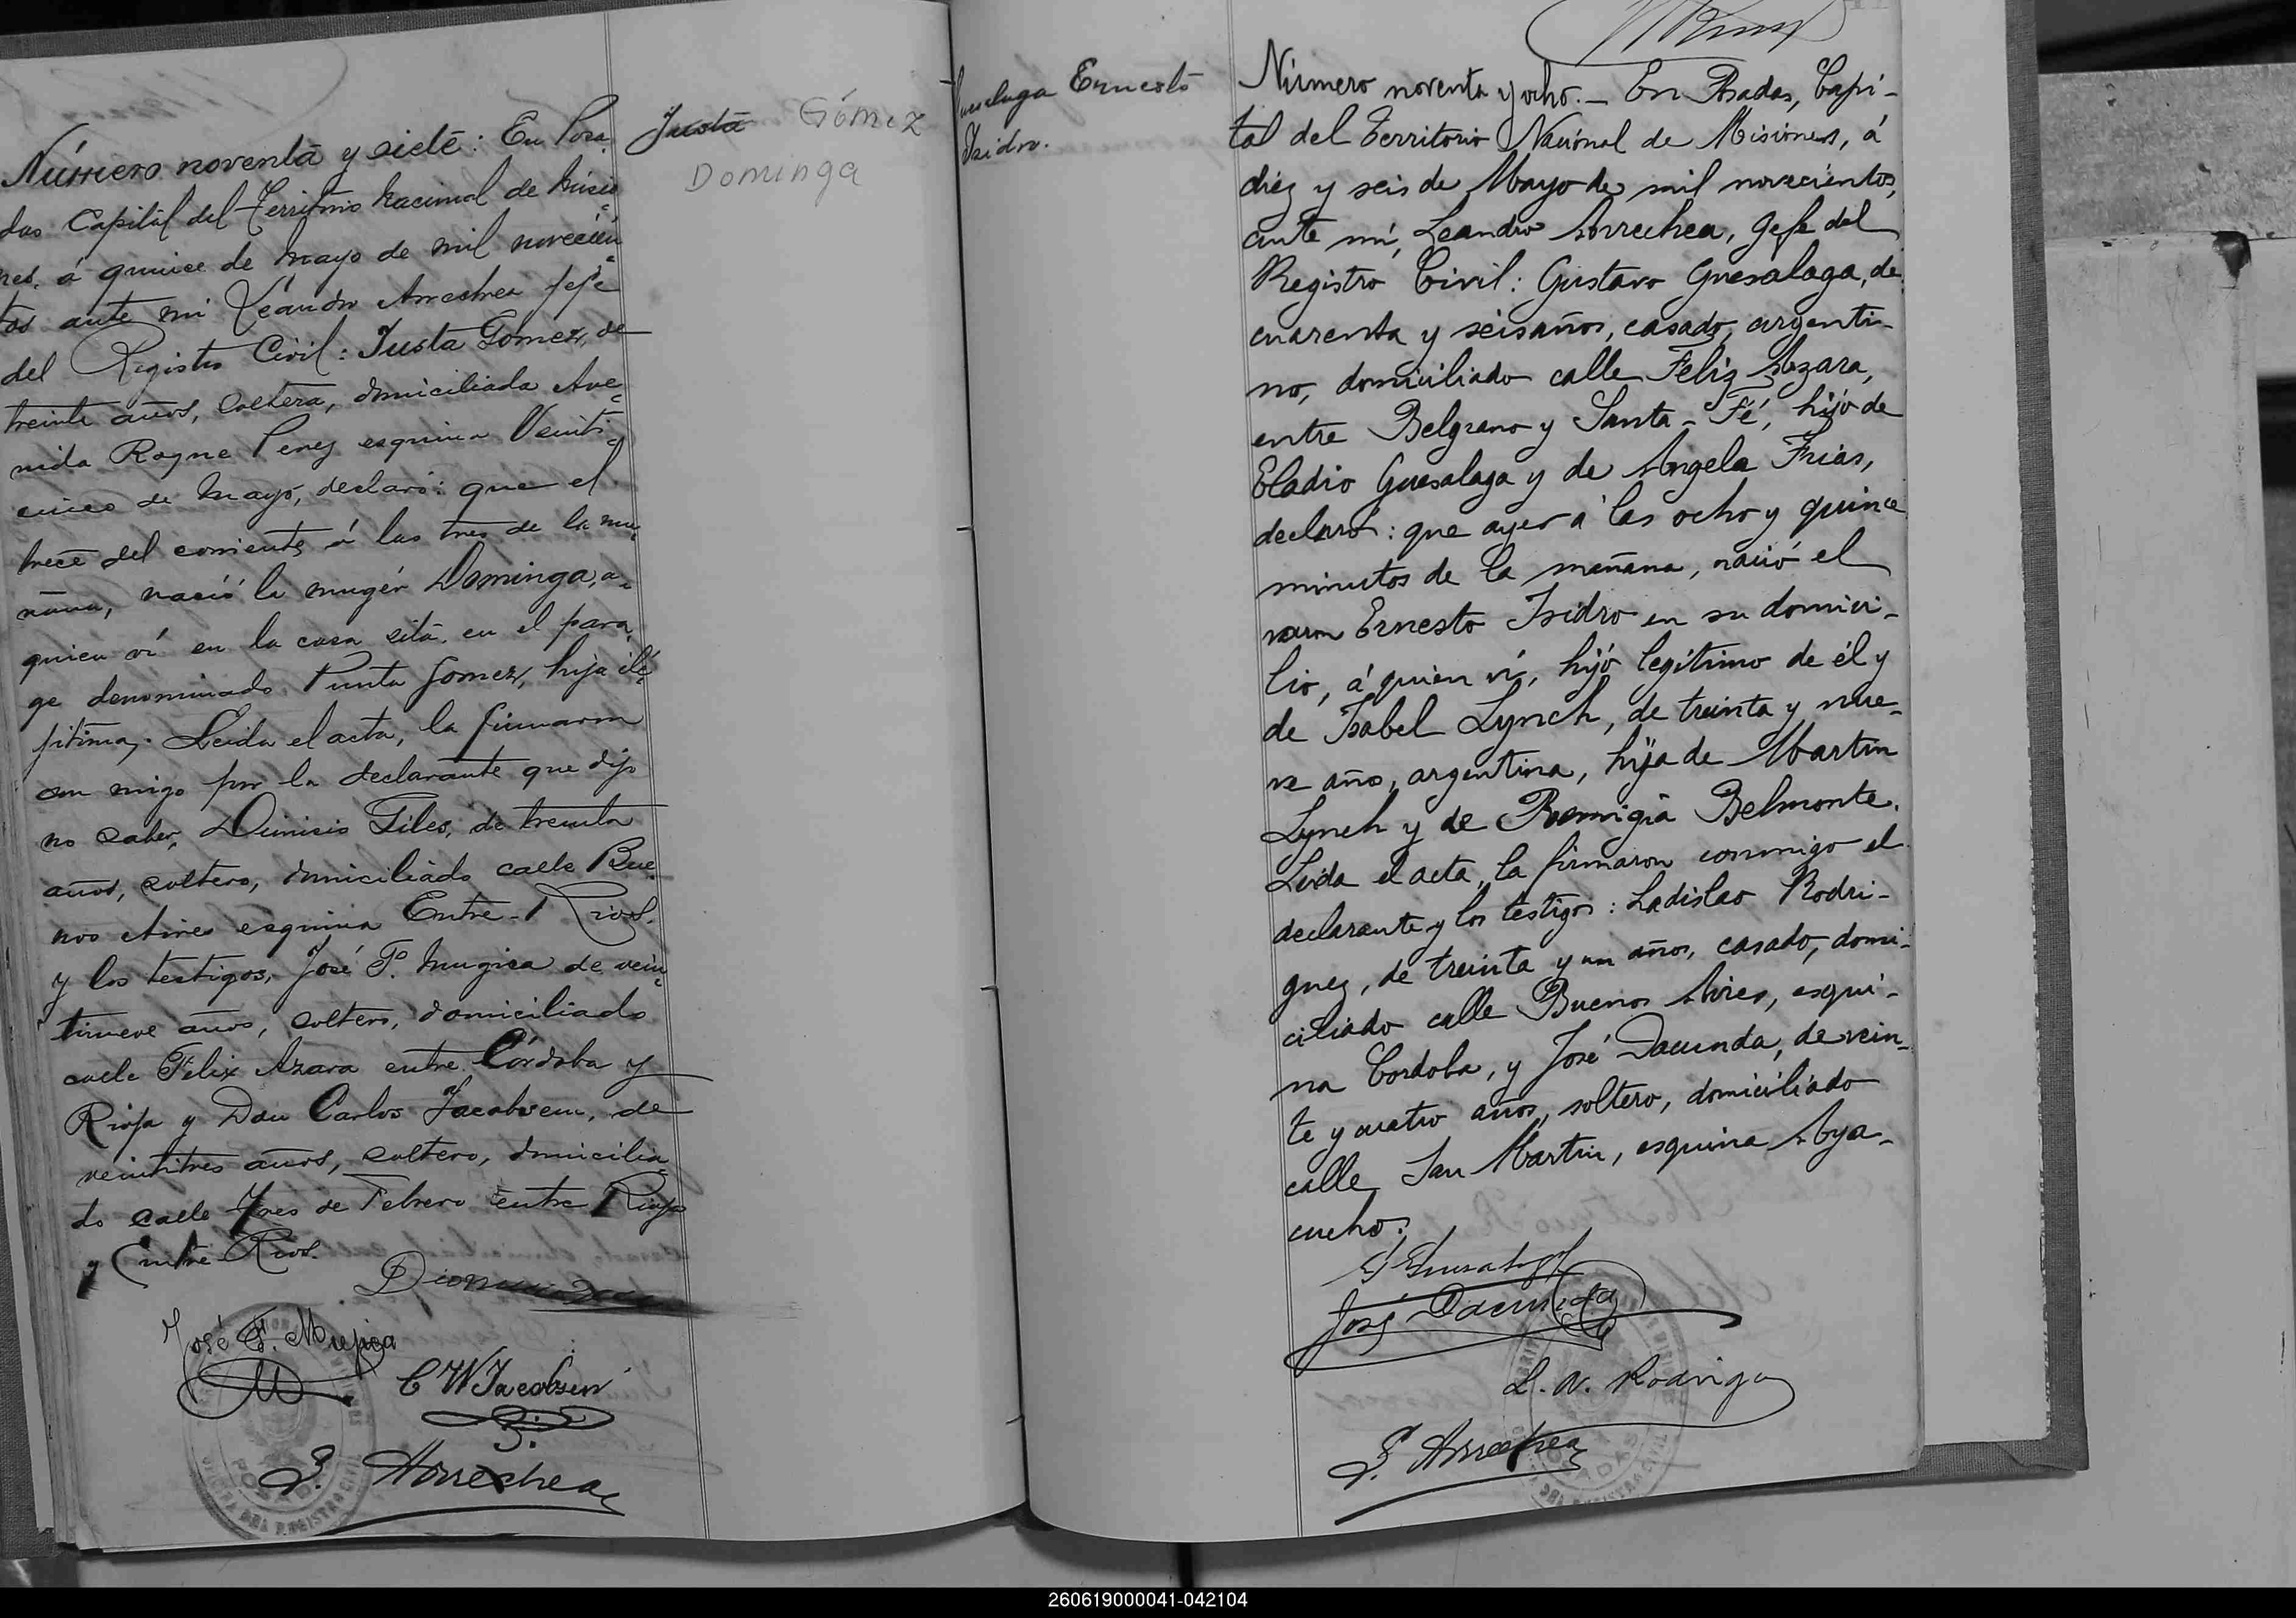 Número noventa y siete: En Posa
das Capital del Territorio Nacional de Misio
nes, á quince de Mayo de mil novecien
tos ante mi Leandro Arrechea Jefe
del Registro Civil: Justa Gomez, de
treinta años, soltera, domiciliada Ave
nida Roque Perez esquina Veinti
cinco de Mayo, declaró: que el
trece del corriente á las tres de la ma
ñana, nació la muger Dominga, a
quien ví en la casa sita en el para
ge denominado Punta Gomez, hija ilé
jitima. Leida el acta, la firmaron
con migo por la declarante que dijo
no saber, Dionisio Giles, de treinta
años, soltero, domiciliado calle Bue
nos Aires esquina Entre-Rios.
y los testigos, José F. Mugica de vein
tinueve años, soltero, domiciliado
calle Felix Azara entre Córdoba y
Rioja y Don Carlos Jacobsen, de
veintitres años, soltero, domicilia
do calle Tres de Febrero entre Rioja
y Entre Rios.
José F. Mujica
C W Jacobsen
L. Arrechea
Justa Gómez
Dominga
Guesalaga Ernesto
Isidro.
Número noventa y ocho.- En Posadas, Capi-
tal del Territorio Nacional de Misiones, á
diez y seis de Mayo de mil novecientos,
ante mí, Leandro Arrechea, Gefe del
Registro Civil: Gustavo Guesalaga, de
cuarenta y seis años, casado, argenti-
no, domiciliado calle Feliz Azara,
entre Belgrano y Santa-Fé, hijo de
Eladio Guesalaga y de Angela Frias,
declaró: que ayer á las ocho y quince
minutos de la mañana, nació el
varon Ernesto Isidro en su domici-
lio, á quien ví, hijo legítimo de él y
de Isabel Lynch, de treinta y nue-
ve años, argentina, hija de Martin
Lynch y de Remigia Belmonte.
Leida el acta, la firmaron conmigo el
declarante y los testigos: Ladislao Rodri-
guez, de treinta y un años, casado, domi-
ciliado calle Buenos Aires, esqui-
na Cordoba, y José Dacunda, de vein-
te y cuatro años, soltero, domiciliado
calle San Martin, esquina Aya-
cucho.
José Dacunda
L. N. Rodrigu
L. Arrechea
POSADAS
DEL REGISTRO CIVIL
260619000041-042104